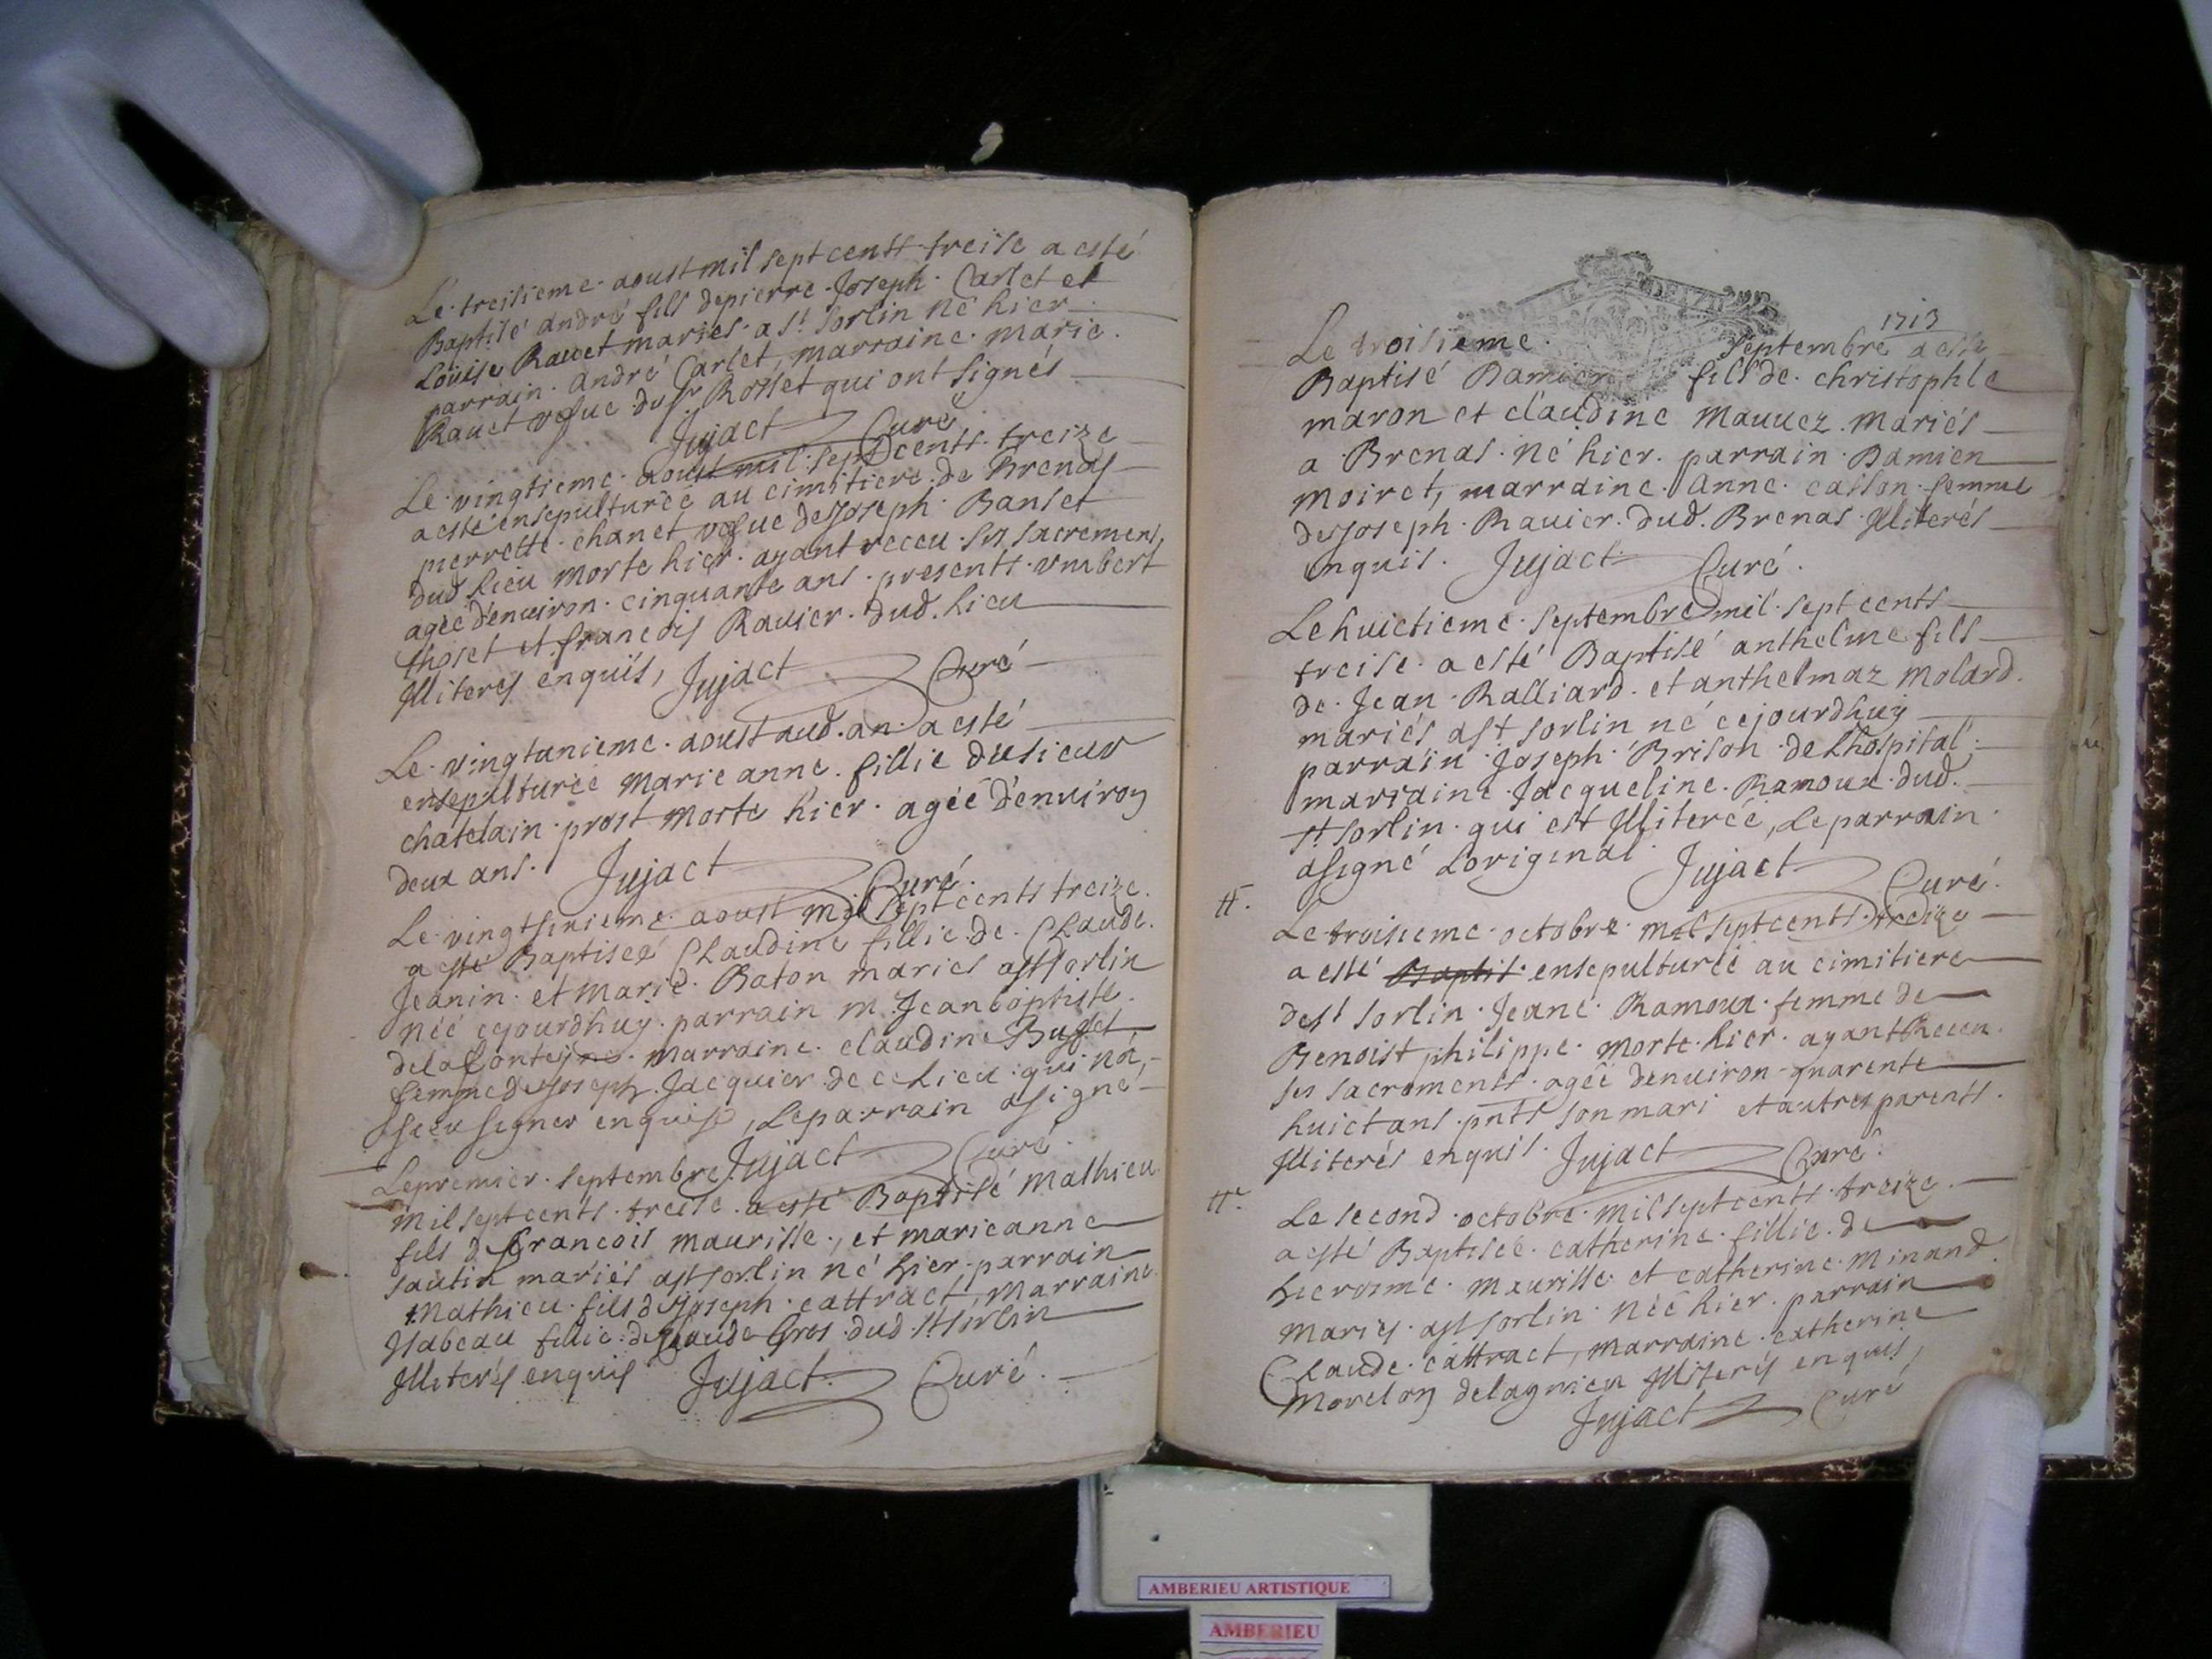 Le treisieme aoust mil sept cents treise a esté
Baptisé andré fils de pierre Joseph Carlet et
Loüise Rauet mariés a St Sorlin né hier
parrain andré Carlet, marraine marie
Rauet vefue du Sr Rosset qui ont signés
Jujact Curé
Le vingtieme aoust mil sept cents treize
a esté ensepulturée au cimitiere de Brenas
pierrette chanet vefue de Joseph Banset
dud lieu morte hier ayant receu ses sacrements
agée d'enuiron cinquante ans presents vmbert
thoset et francois Rauier dud. lieu
Illiterés enquis, Jujact Curé
Le vingtunieme aoust aud. an a esté
ensepulturée marie anne fillie du sieur
chatelain prost morte hier agée d'enuiron
deux ans. Jujact Curé.
Le vingtsixieme aoust mil sept cents treize
a esté Baptisée Claudine fillie de Claude
Jeanin et marie Baton mariés a St Sorlin
née cejourdhuy parrain m. Jean baptiste
delafonteine marraine claudine Buffet
femme de Joseph Jacquier de ce lieu qui na
sceu signer enquise, Le parrain a signé
Jujact Curé
Le premier septembre
mil sept cents treise a esté Baptisé mathieu
fils de francois maurisse, et marieanne
sautin mariés a St sorlin né hier parrain
mathieu fils de Joseph cattract, marraine
Isabeau fillie de Claude Gros dud. St Sorlin
Illiterés enquis Jujact Curé
1713
Le troisieme septembre a esté
Baptisé Damien fils de christophle
maron et claudine mauuez mariés
a Brenas né hier. parrain Damien
moiret, marraine anne casson femme
de Joseph Rauier dud. Brenas Illiterés
enquis. Jujact Curé.
Le huictieme septembre mil sept cents
treise a esté Baptisé anthelme fils
de Jean Ralliard et anthelmaz molard
mariés a St sorlin né cejourdhuy
parrain Joseph Brison de Lhospital
marraine Jacqueline Ramoux dud.
St Sorlin qui est Illiterée, Le parrain
a signé Loriginal Jujact Curé.
Le troisieme octobre mil sept cents treize
a esté Baptis ensepulturée au cimitiere
de St Sorlin Jeane Ramoux femme de
Benoist philippe morte hier ayant Receu
ses sacrements agée denuiron quarente
huict ans pnts son mari et autres parents
Illiterés enquis. Jujact Curé.
Le second octobre mil sept cents treize
a esté Baptisée catherine fillie de
hierosme maurisse et catherine minand
mariés a St sorlin née hier parrain
Claude cattract, marraine catherine
morelon de lagnieu Illiterés enquis,
Jujact Curé
AMBERIEU ARTISTIQUE
AMBERIEU